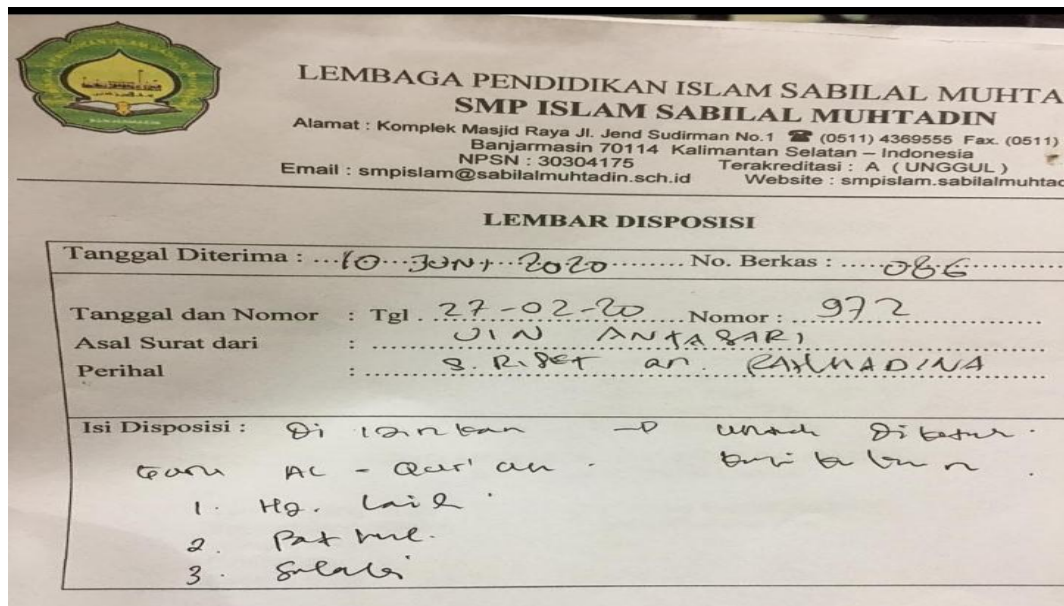 LEMBAGA PENDIDIKAN ISLAM SABILAL MUHTA
SMP ISLAM SABILAL MUHTADIN
Alamat : Komplek Masjid Raya Jl. Jend Sudirman No.1 ☎ (0511) 4369555 Fax. (0511)
Banjarmasin 70114 Kalimantan Selatan – Indonesia
NPSN : 30304175 Terakreditasi : A ( UNGGUL )
Email : smpislam@sabilalmuhtadin.sch.id Website : smpislam.sabilalmuhtad
LEMBAR DISPOSISI
Tanggal Diterima : 10 JUNI 2020 No. Berkas : 086
Tanggal dan Nomor : Tgl 27-02-20 Nomor : 972
Asal Surat dari : UIN ANTASARI
Perihal : S. Riset an. RAHMADINA
Isi Disposisi : Di izinkan → untuk
Guru AL - Qur'an
1. Hj. Laila
2.
3.